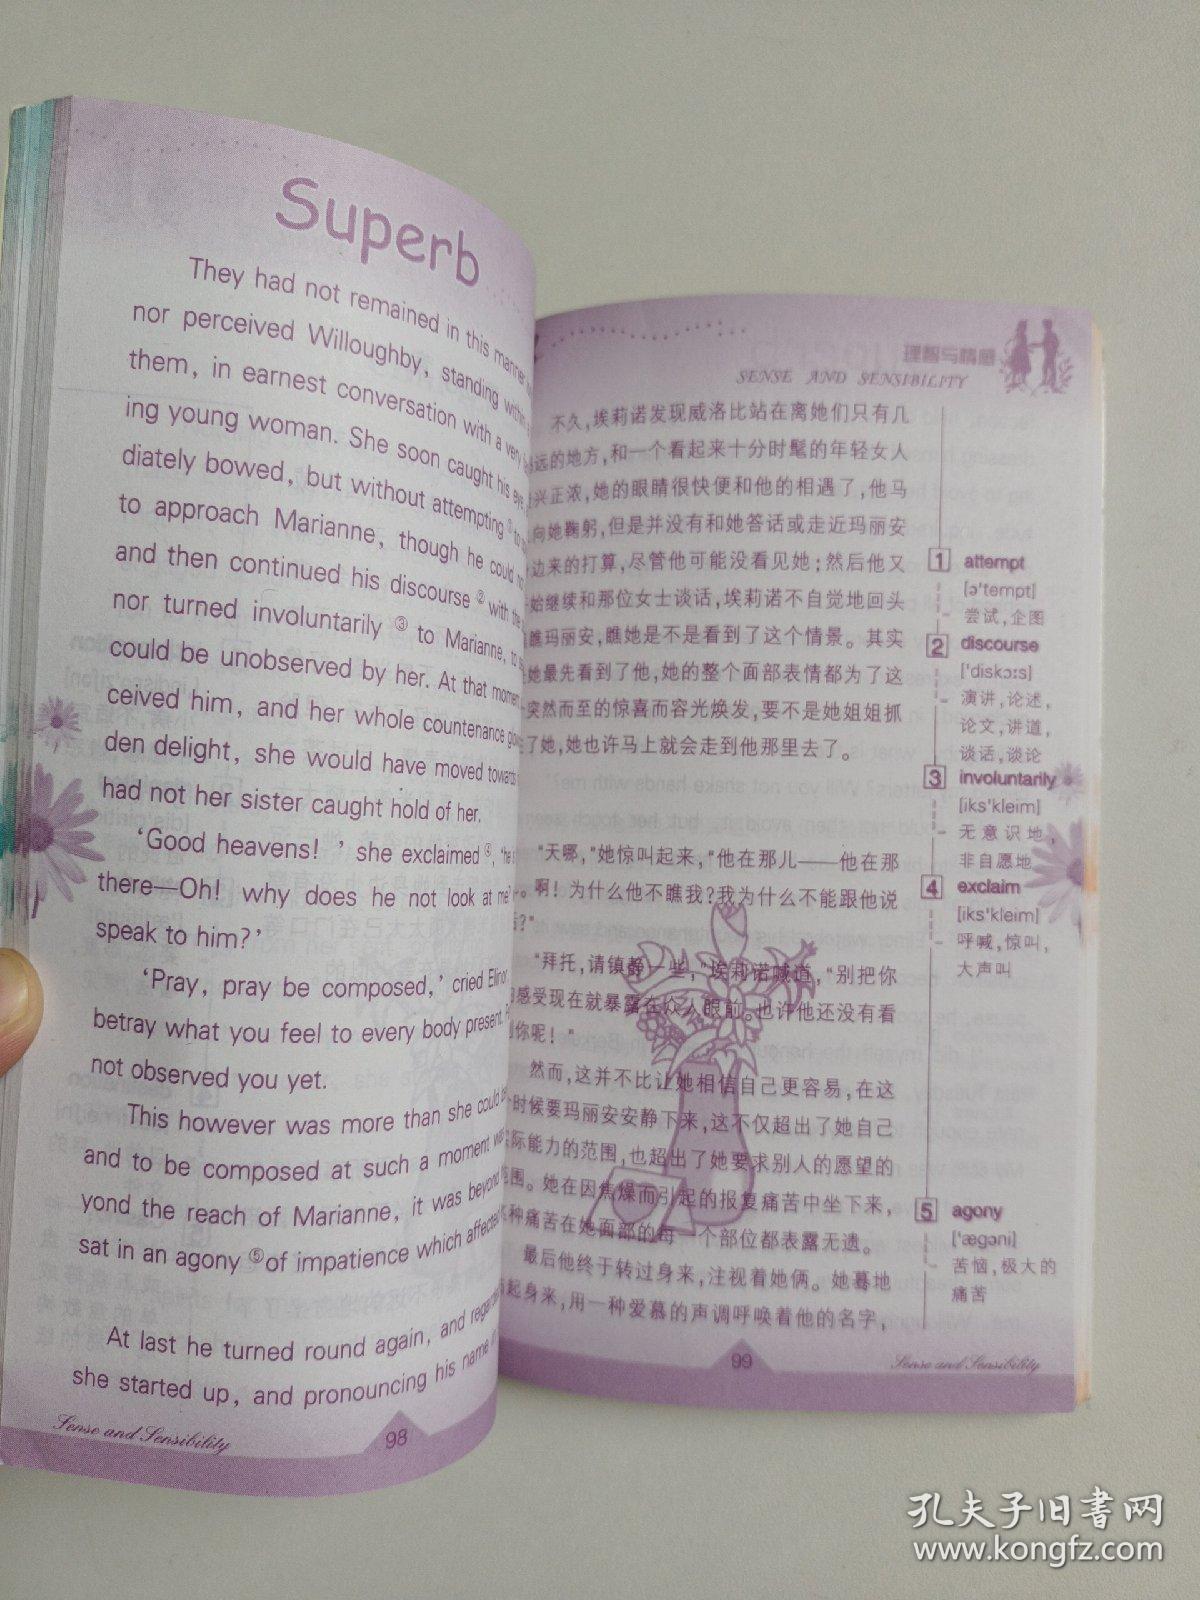 Superb
They had not remained in this manner
nor perceived Willoughby, standing within
them, in earnest conversation with a very
ing young woman. She soon caught his eye,
diately bowed, but without attempting ① to
to approach Marianne, though he could not
and then continued his discourse ② with the
nor turned involuntarily ③ to Marianne, to
could be unobserved by her. At that moment
ceived him, and her whole countenance
den delight, she would have moved towards
had not her sister caught hold of her.
‘Good heavens! ’ she exclaimed
there—Oh! why does he not look at me?
speak to him?’
‘Pray, pray be composed,’ cried Elinor
betray what you feel to every body present.
not observed you yet.
This however was more than she could
and to be composed at such a moment was
yond the reach of Marianne, it was beyond
sat in an agony ⑤ of impatience which affected
At last he turned round again, and
she started up, and pronouncing his name in
Sense and Sensibility
98
理智与情感
SENSE AND SENSIBILITY
不久,埃莉诺发现威洛比站在离她们只有几
远的地方,和一个看起来十分时髦的年轻女人
兴正浓,她的眼睛很快便和他的相遇了,他马
向她鞠躬,但是并没有和她答话或走近玛丽安
边来的打算,尽管他可能没看见她;然后他又
始继续和那位女士谈话,埃莉诺不自觉地回头
瞧玛丽安,瞧她是不是看到了这个情景。其实
她最先看到了他,她的整个面部表情都为了这
突然而至的惊喜而容光焕发,要不是她姐姐抓
了她,她也许马上就会走到他那里去了。
“天哪,”她惊叫起来,“他在那儿——他在那
。啊!为什么他不瞧我?我为什么不能跟他说
?”
“拜托,请镇静一些,”埃莉诺喊道,“别把你
感受现在就暴露在众人眼前。也许他还没有看
你呢!”
然而,这并不比让她相信自己更容易,在这
时候要玛丽安安静下来,这不仅超出了她自己
际能力的范围,也超出了她要求别人的愿望的
围。她在因焦燥而引起的报复痛苦中坐下来,
种痛苦在她面部的每一个部位都表露无遗。
最后他终于转过身来,注视着她俩。她蓦地
起身来,用一种爱慕的声调呼唤着他的名字,
1 attempt
[ə'tempt]
尝试,企图
2 discourse
['diskɔːs]
演讲,论述,
论文,讲道,
谈话,谈论
3 involuntarily
[iks'kleim]
无意识地,
非自愿地
4 exclaim
[iks'kleim]
呼喊,惊叫,
大声叫
5 agony
['ægəni]
苦恼,极大的
痛苦
99
Sense and Sensibility
孔夫子旧书网
www.kongfz.com